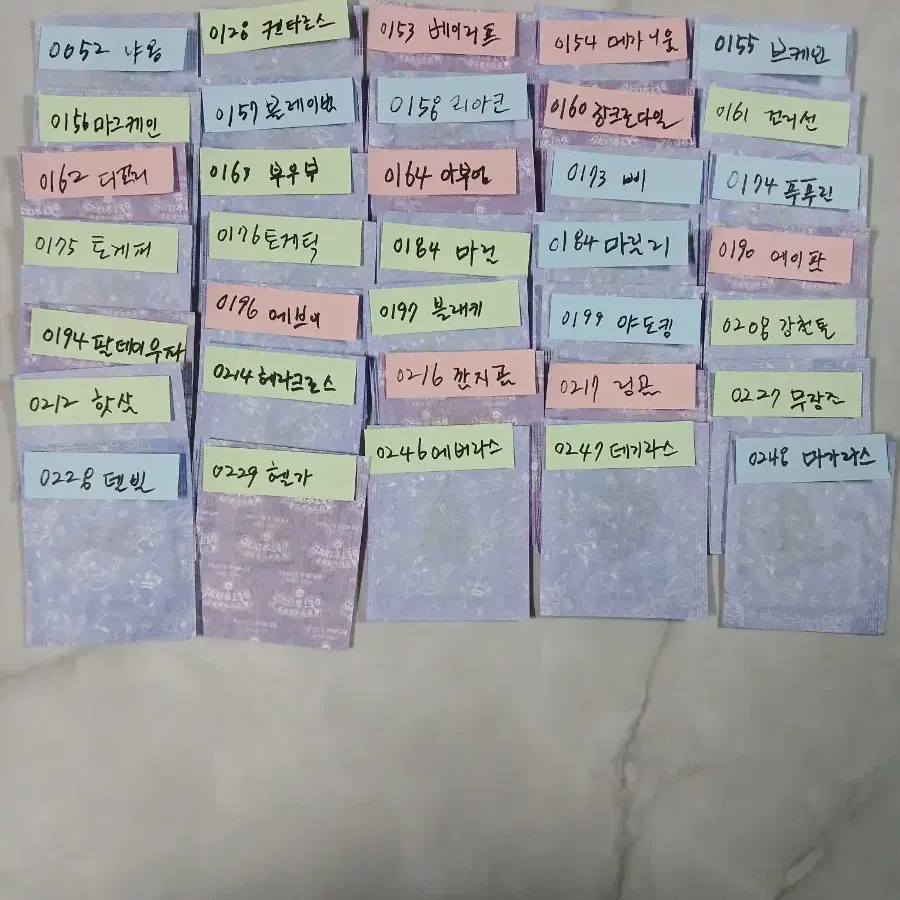 0052 냐옹
0128 켄타로스
0153 베이리프
0154 메가니움
0155 브케인
0156 마그케인
0157 블레이범
0158 리아코
0160 장크로다일
0161 꼬리선
0162 다꼬리
0163 부우부
0164 야부엉
0173 삐
0174 푸푸린
0175 토게피
0176 토게틱
0184 마릴
0184 마릴리
0190 에이팜
0194 팔데아우파
0196 에브이
0197 블래키
0199 야도킹
0208 강철톤
0212 핫삼
0214 헤라크로스
0216 깜지곰
0217 링곰
0227 무장조
0228 델빌
0229 헬가
0246 애버라스
0247 데기라스
0248 마기라스